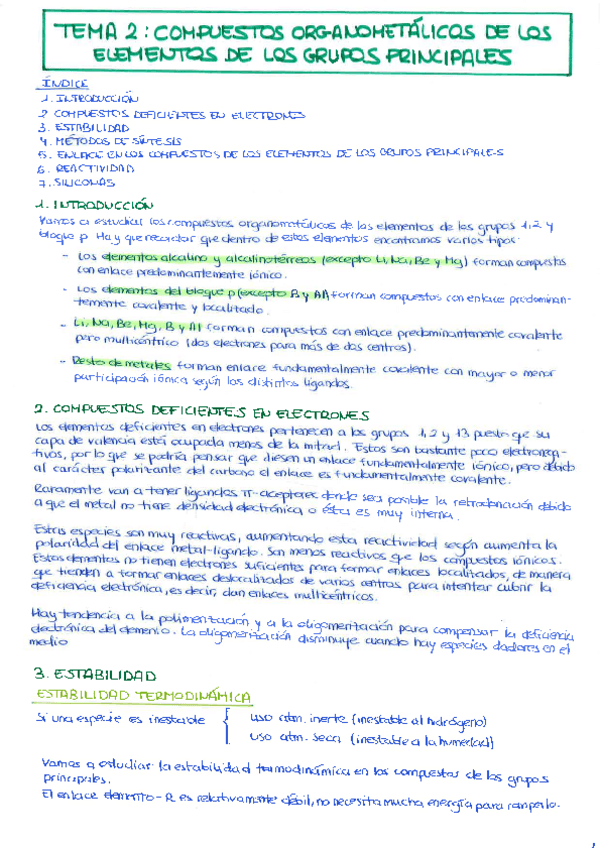 TEMA 2: COMPUESTOS ORGANOMETÁLICOS DE LOS
ELEMENTOS DE LOS GRUPOS PRINCIPALES
ÍNDICE
1. INTRODUCCIÓN
2 COMPUESTOS DEFICIENTES EN ELECTRONES
3. ESTABILIDAD
4. MÉTODOS DE SÍNTESIS
5. ENLACE EN LOS COMPUESTOS DE LOS ELEMENTOS DE LOS GRUPOS PRINCIPALES
6. REACTIVIDAD
7. SILICONAS
1. INTRODUCCIÓN
Vamos a estudiar los compuestos organometálicos de los elementos de los grupos 1, 2 y
bloque p Hay que recordar que dentro de estos elementos encontramos varios tipos:
- Los elementos alcalino y alcalinotérreos (excepto Li, Na, Be y Mg) forman compuestos
con enlace predominantemente iónico.
- Los elementos del bloque p (excepto B y Al) forman compuestos con enlace predominan-
temente covalente y localizado.
- Li, Na, Be, Mg, B y Al forman compuestos con enlace predominantemente covalente
pero multicéntrico (dos electrones para más de dos centros).
- Resto de metales forman enlace fundamentalmente covalente con mayor o menor
participación iónica según los distintos ligandos.
2. COMPUESTOS DEFICIENTES EN ELECTRONES
Los elementos deficientes en electrones pertenecen a los grupos 1, 2 y 13 puesto que su
capa de valencia está ocupada menos de la mitad. Estos son bastante poco electronega-
tivos, por lo que se podría pensar que diesen un enlace fundamentalmente iónico, pero debido
al carácter polarizante del carbono el enlace es fundamentalmente covalente.
Raramente van a tener ligandos π-aceptores donde sea posible la retrodonación debido
a que el metal no tiene densidad electrónica o ésta es muy interna.
Estas especies son muy reactivas, aumentando esta reactividad según aumenta la
polaridad del enlace metal-ligando. Son menos reactivos que los compuestos iónicos.
Estos elementos no tienen electrones suficientes para formar enlaces localizados, de manera
que tienden a formar enlaces deslocalizados de varios centros para intentar cubrir la
deficiencia electrónica, es decir, dan enlaces multicéntricos.
Hay tendencia a la polimerización y a la oligomerización para compensar la deficiencia
electrónica del elemento. La oligomerización disminuye cuando hay especies dadores en el
medio
3. ESTABILIDAD
ESTABILIDAD TERMODINÁMICA
Si una especie es inestable { uso atm. inerte (inestable al hidrógeno)
uso atm. seca (inestable a la humedad)
Vamos a estudiar la estabilidad termodinámica en los compuestos de los grupos
principales.
El enlace elemento-R es relativamente débil, no necesita mucha energía para romperlo.